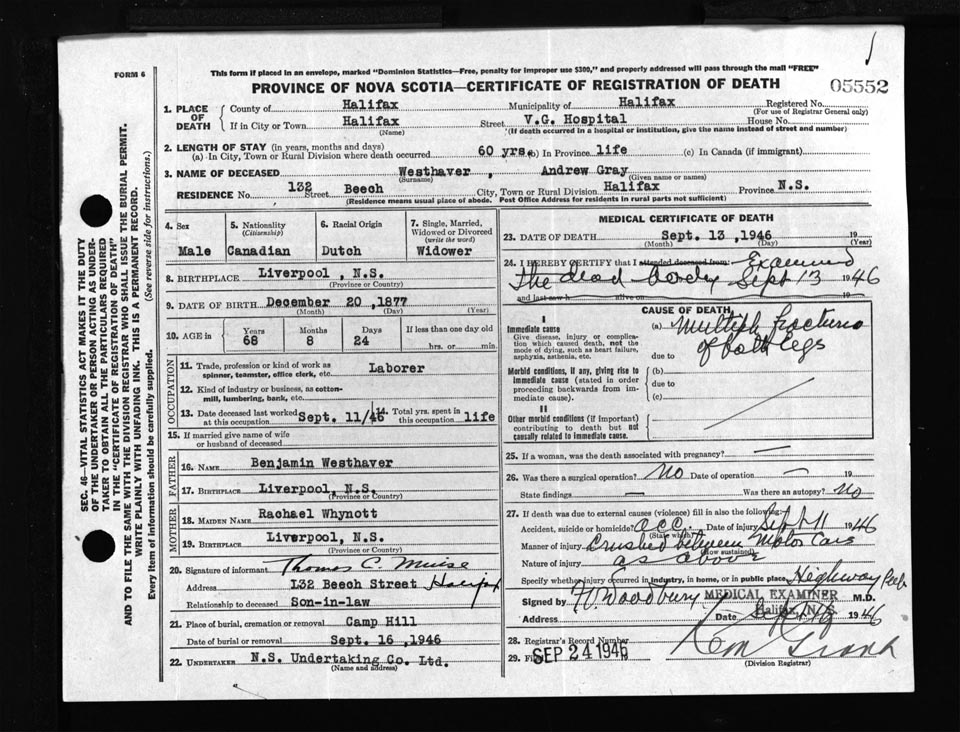 FORM 6
This form if placed in an envelope, marked "Dominion Statistics—Free, penalty for improper use $300," and properly addressed will pass through the mail "FREE"
PROVINCE OF NOVA SCOTIA—CERTIFICATE OF REGISTRATION OF DEATH
05552
SEC. 46—VITAL STATISTICS ACT MAKES IT THE DUTY
OF THE UNDERTAKER OR PERSON ACTING AS UNDER-
TAKER TO OBTAIN ALL THE PARTICULARS REQUIRED
IN THE "CERTIFICATE OF REGISTRATION OF DEATH"
AND TO FILE THE SAME WITH THE DIVISION REGISTRAR WHO SHALL ISSUE THE BURIAL PERMIT.
WRITE PLAINLY WITH UNFADING INK. THIS IS A PERMANENT RECORD.
Every item of information should be carefully supplied. (See reverse side for instructions.)
1. PLACE OF DEATH
County of Halifax Municipality of Halifax Registered No.
(For use of Registrar General only)
If in City or Town Halifax Street V.G. Hospital House No.
(Name) (If death occurred in a hospital or institution, give the name instead of street and number)
2. LENGTH OF STAY (in years, months and days)
(a) In City, Town or Rural Division where death occurred 60 yrs. (b) In Province life (c) In Canada (if immigrant)
3. NAME OF DECEASED Westhaver, Andrew Gray
(Surname) (Given name or names)
RESIDENCE No. 132 Street Beech City, Town or Rural Division Halifax Province N.S.
(Residence means usual place of abode. Post Office Address for residents in rural parts not sufficient)
4. Sex
Male
5. Nationality
(Citizenship)
Canadian
6. Racial Origin
Dutch
7. Single, Married, Widowed or Divorced
(write the word)
Widower
8. BIRTHPLACE Liverpool, N.S.
(Province or Country)
9. DATE OF BIRTH December 20, 1877
(Month) (Day) (Year)
10. AGE in
Years Months Days If less than one day old
68 8 24 hrs. or min.
OCCUPATION
11. Trade, profession or kind of work as
spinner, teamster, office clerk, etc. Laborer
12. Kind of industry or business, as cotton-
mill, lumbering, bank, etc.
13. Date deceased last worked at this occupation Sept. 11/46 14. Total yrs. spent in this occupation life
15. If married give name of wife
or husband of deceased
FATHER
16. NAME Benjamin Westhaver
17. BIRTHPLACE Liverpool, N.S.
(Province or Country)
MOTHER
18. MAIDEN NAME Rachael Whynott
19. BIRTHPLACE Liverpool, N.S.
(Province or Country)
20. Signature of informant Thomas C. Muise
Address 132 Beech Street Halifax
Relationship to deceased Son-in-law
21. Place of burial, cremation or removal Camp Hill
Date of burial or removal Sept. 16, 1946
22. UNDERTAKER N.S. Undertaking Co. Ltd.
(Name and address)
MEDICAL CERTIFICATE OF DEATH
23. DATE OF DEATH Sept. 13, 1946 19
(Month) (Day) (Year)
24. I HEREBY CERTIFY that I attended deceased from: Examined
the dead body Sept 13 1946
and last saw h alive on 19
CAUSE OF DEATH
I
Immediate cause
Give disease, injury or complica-
tion which caused death, not the
mode of dying, such as heart failure,
asphyxia, asthenia, etc.
(a) Multiple fractures
of both legs
due to
Morbid conditions, if any, giving rise to
immediate cause (stated in order
proceeding backwards from im-
mediate cause).
(b)
due to
(c)
II
Other morbid conditions (if important)
contributing to death but not
causally related to immediate cause.
25. If a woman, was the death associated with pregnancy? —
26. Was there a surgical operation? No Date of operation — 19
State findings — Was there an autopsy? No
27. If death was due to external causes (violence) fill in also the following:
Accident, suicide or homicide? acc. Date of injury Sept 11 1946
(State which)
Manner of injury Crushed between Motor Cars
(How sustained)
Nature of injury as above
Specify whether injury occurred in industry, in home, or in public place Highway
Signed by Woodbury MEDICAL EXAMINER M.D.
Halifax, N.S.
Address Date 1946
28. Registrar's Record Number
29. Filed SEP 24 1946
(Division Registrar)